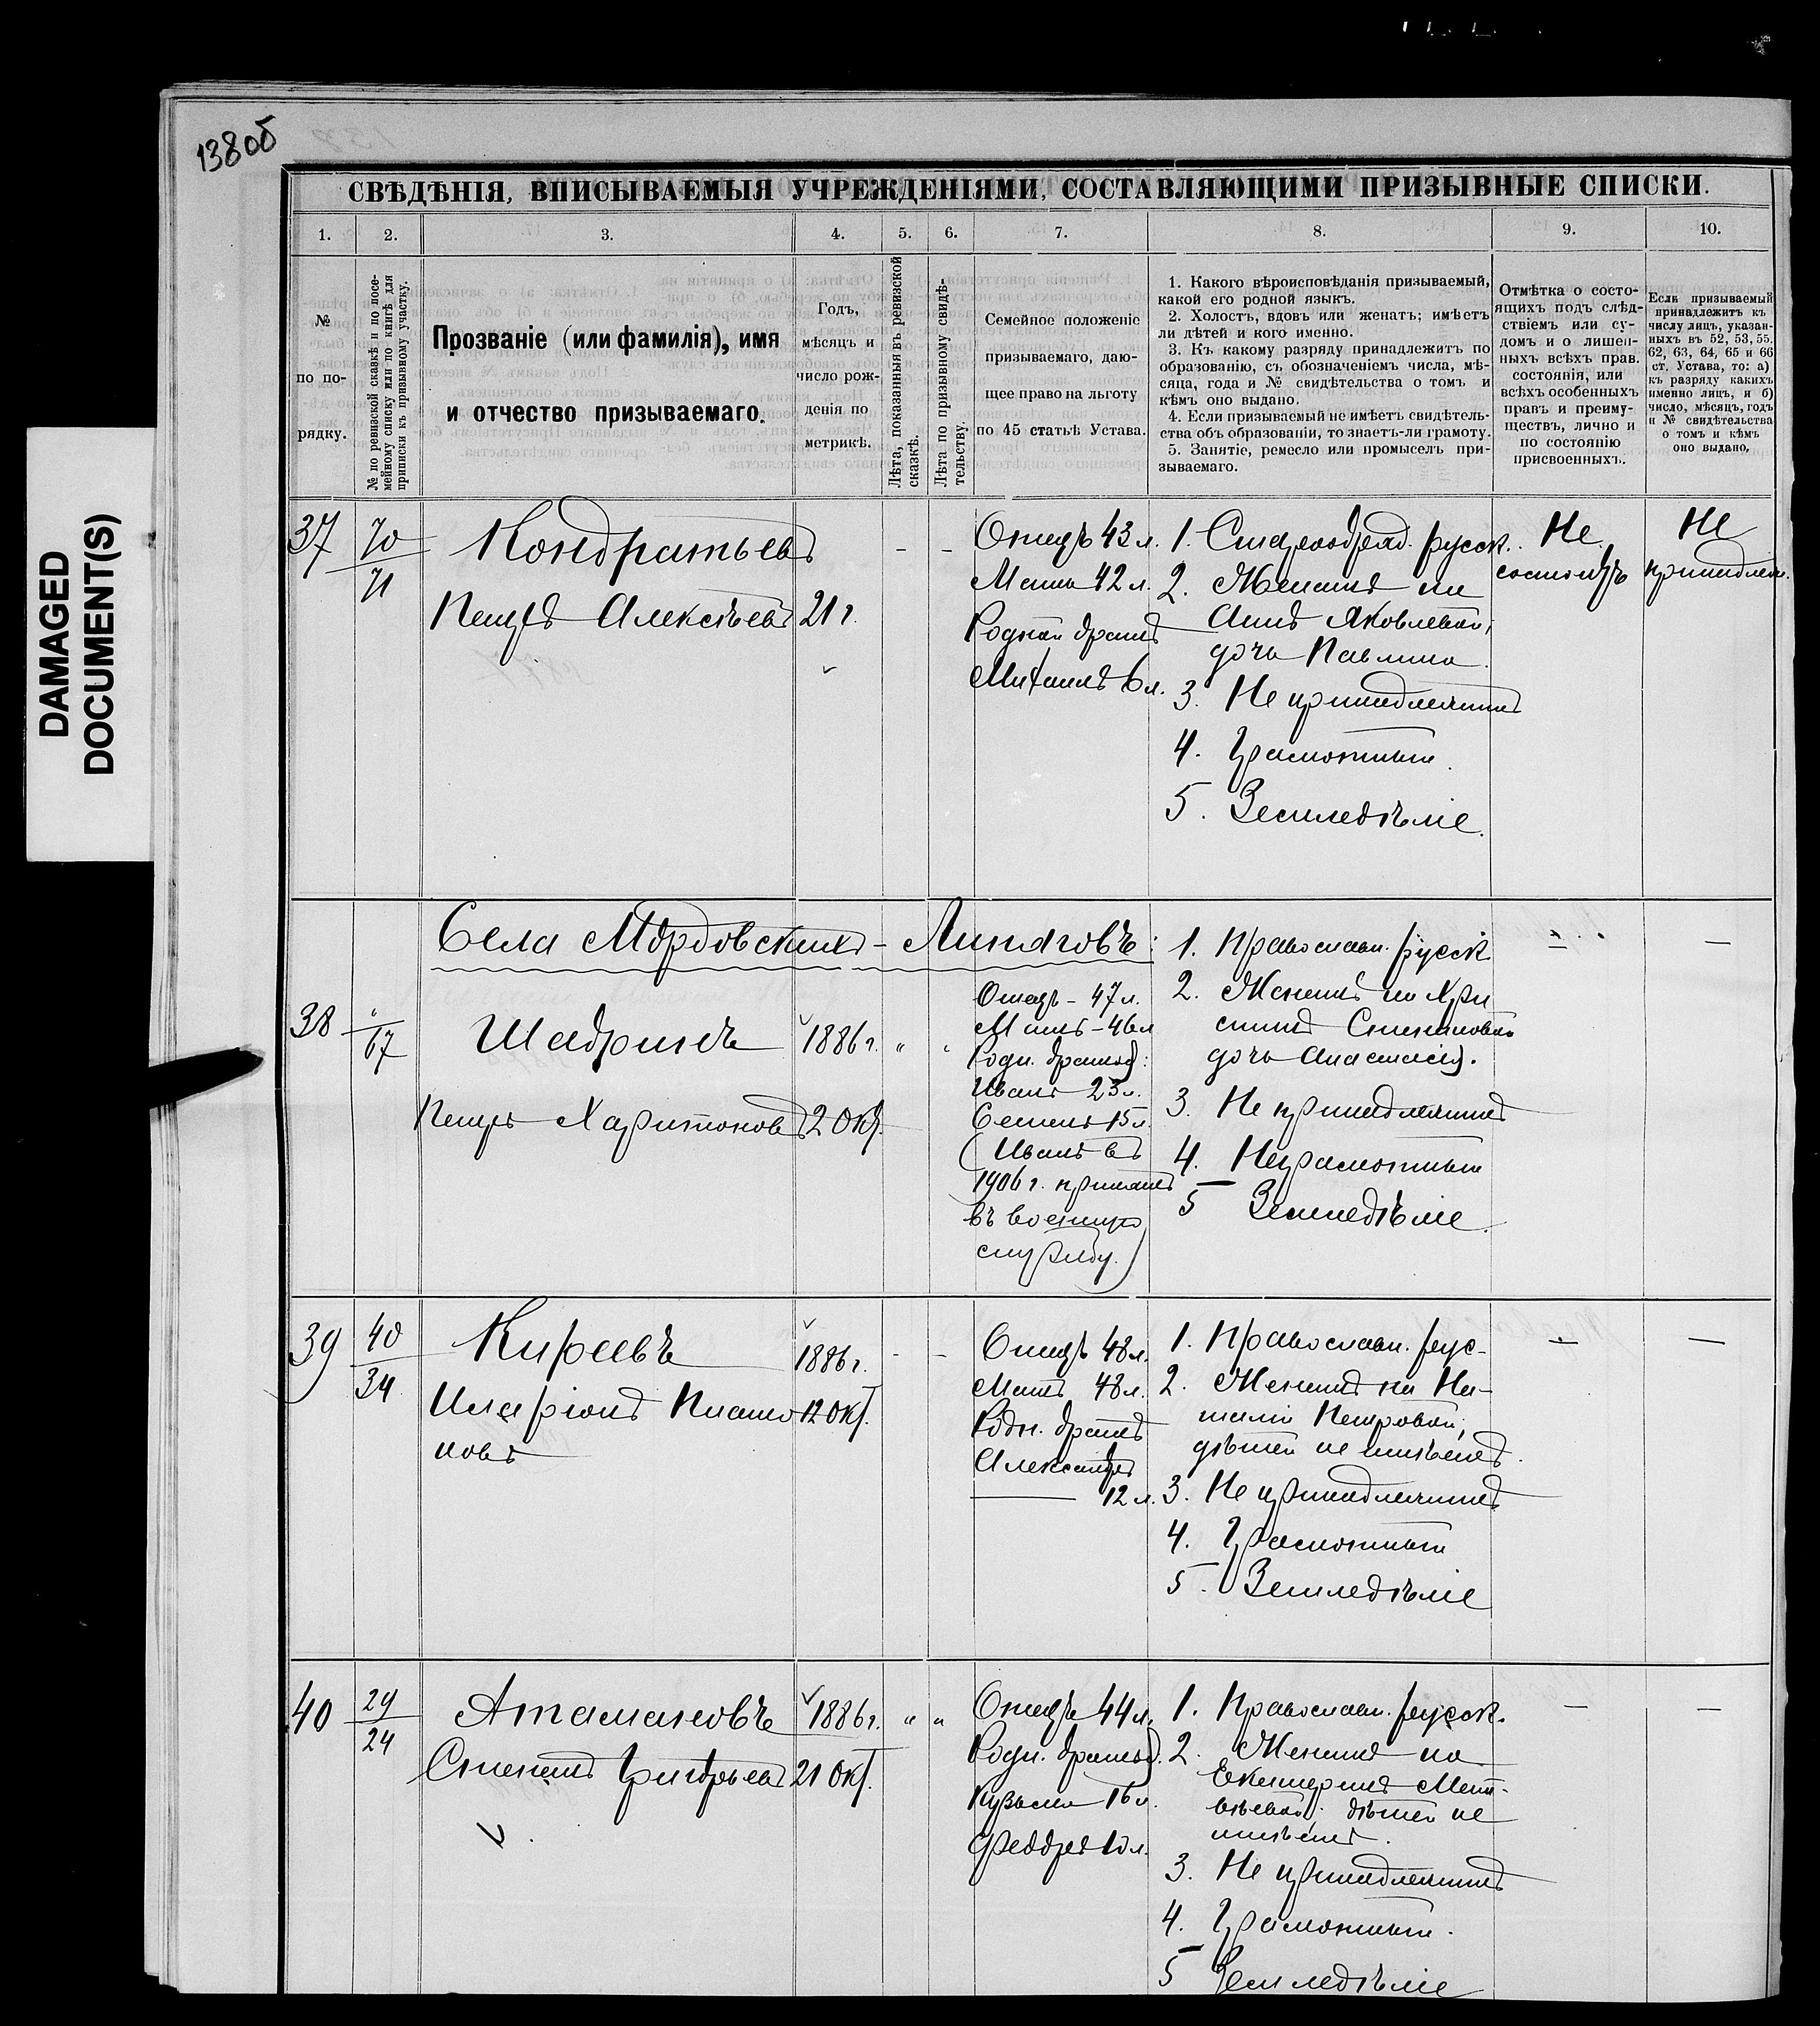 138об
DAMAGED
DOCUMENT(S)
СВѢДѢНІЯ, ВПИСЫВАЕМЫЯ УЧРЕЖДЕНІЯМИ, СОСТАВЛЯЮЩИМИ ПРИЗЫВНЫЕ СПИСКИ.
1. 2. 3. 4. 5. 6. 7. 8. 9. 10.
№
по по-
рядку.
№ по ревизской сказкѣ и по посе-
мейному списку или по книгѣ для
приписки къ призывному участку.
Прозваніе (или фамилія), имя
и отчество призываемаго.
Годъ,
мѣсяцъ и
число рож-
денія по
метрикѣ.
Лѣта, показанныя въ ревизской
сказкѣ.
Лѣта по призывному свидѣ-
тельству.
Семейное положеніе
призываемаго, даю-
щее право на льготу
по 45 статьѣ Устава.
1. Какого вѣроисповѣданія призываемый,
какой его родной языкъ.
2. Холостъ, вдовъ или женатъ; имѣетъ
ли дѣтей и кого именно.
3. Къ какому разряду принадлежитъ по
образованію, съ обозначеніемъ числа, мѣ-
сяца, года и № свидѣтельства о томъ и
кѣмъ оно выдано.
4. Если призываемый не имѣетъ свидѣтель-
ства объ образованіи, то знаетъ-ли грамоту.
5. Занятіе, ремесло или промыселъ при-
зываемаго.
Отмѣтка о состо-
ящихъ подъ слѣд-
ствіемъ или су-
домъ и о лишен-
ныхъ всѣхъ прав.
состоянія, или
всѣхъ особенныхъ
правъ и преиму-
ществъ, лично и
по состоянію
присвоенныхъ.
Если призываемый
принадлежитъ къ
числу лицъ, указан-
ныхъ въ 52, 53, 55.
62, 63, 64, 65 и 66
ст. Устава, то: а)
къ разряду какихъ
именно лицъ, и б)
число, мѣсяцъ, годъ
и № свидѣтельства
о томъ и кѣмъ
оно выдано.
37
70
71
Кондратьевъ
Петръ Алексѣевъ
21 г.
- -
Отецъ 43 л.
Мать 42 л.
Родной братъ
Михаилъ 6 л.
1. Старообряд. русск.
2. Женатъ на
Аннѣ Яковлевой,
дочь Павлина.
3. Не принадлежитъ
4. Грамотный.
5. Земледѣліе.
Не
состоитъ
Не
принадлеж.
Села Мордовскихъ-Липяговъ:
38
"
67
Шадринъ
Петръ Харитоновъ
1886 г.
2 окт.
" "
Отецъ - 47 л.
Мать - 46 л
Родн. братья:
Иванъ 23 л.
Семенъ 15 л.
(Иванъ въ
1906 г. принятъ
въ военную
службу.)
1. Православн. русск
2. Женатъ на Хри
стинѣ Степановой
дочь Анастасія.
3. Не принадлежитъ
4. Неграмотный
5 Земледѣліе.
—
—
39
40
34
Кирѣевъ
Иларіонъ Плато
новъ
1886 г.
12 окт.
- -
Отецъ 48 л.
Мать 48 л.
Родн. братъ
Александръ
12 л.
1. Православн. рус-
2. Женатъ на На-
таліи Петровой,
дѣтей не имѣетъ.
3. Не принадлежитъ
4. Грамотный
5. Земледѣліе
—
—
40
29
24
Атамановъ
Степанъ Григорьевъ
1886 г.
21 окт.
" "
Отецъ 44 л.
Родн. братья.
Кузьма 16 л.
Феодоръ 10 л.
1. Православн. русск.
2. Женатъ на
Екатеринѣ Мат-
вѣевой; дѣтей не
имѣетъ.
3. Не принадлежитъ
4. Грамотный.
5 Земледѣліе
—
—